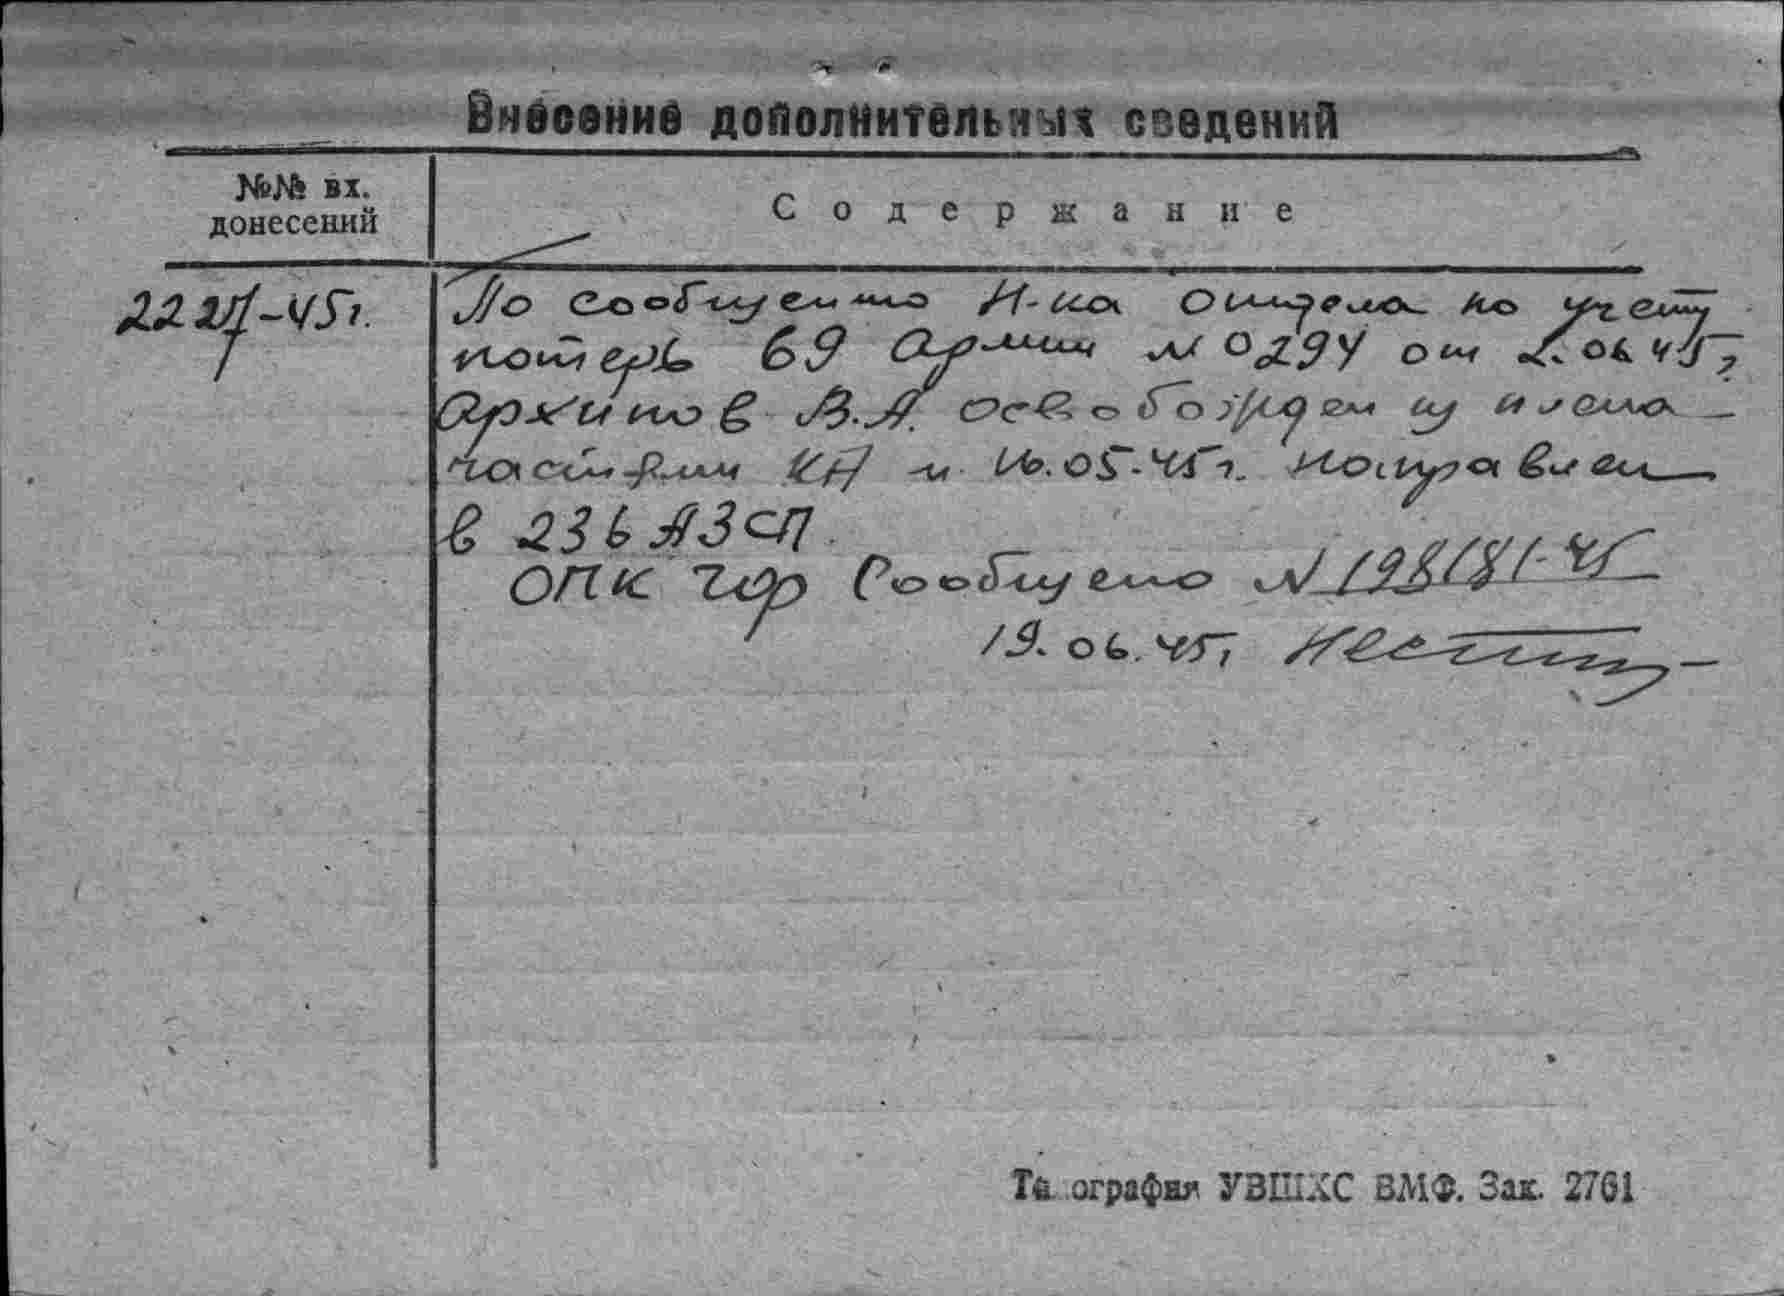 Внесение дополнительных сведений
№№ вх. донесений
Содержание
22 -45г.
По сообщению Н-ка Отдела по учету
потерь 69 Армии № 0294 от 2.06.45г
Архипов В.Я. освобожден из плена
частями КА и 16.05.45г. направлен
в 236 АЗСП
ОПК Сообщено № 198181-45
19.06.45г
Типография УВШКС ВМФ. Зак. 2761